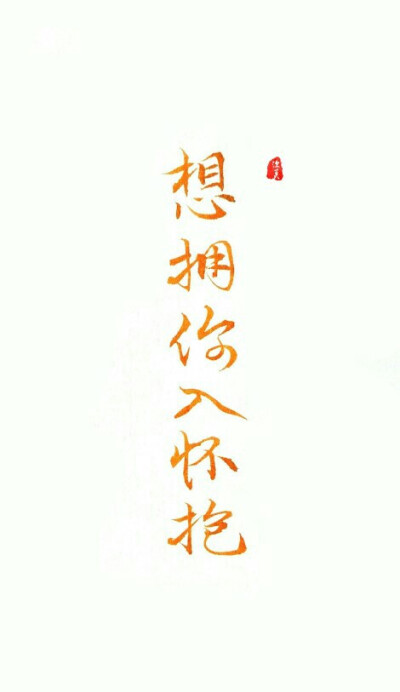 想拥你入怀抱